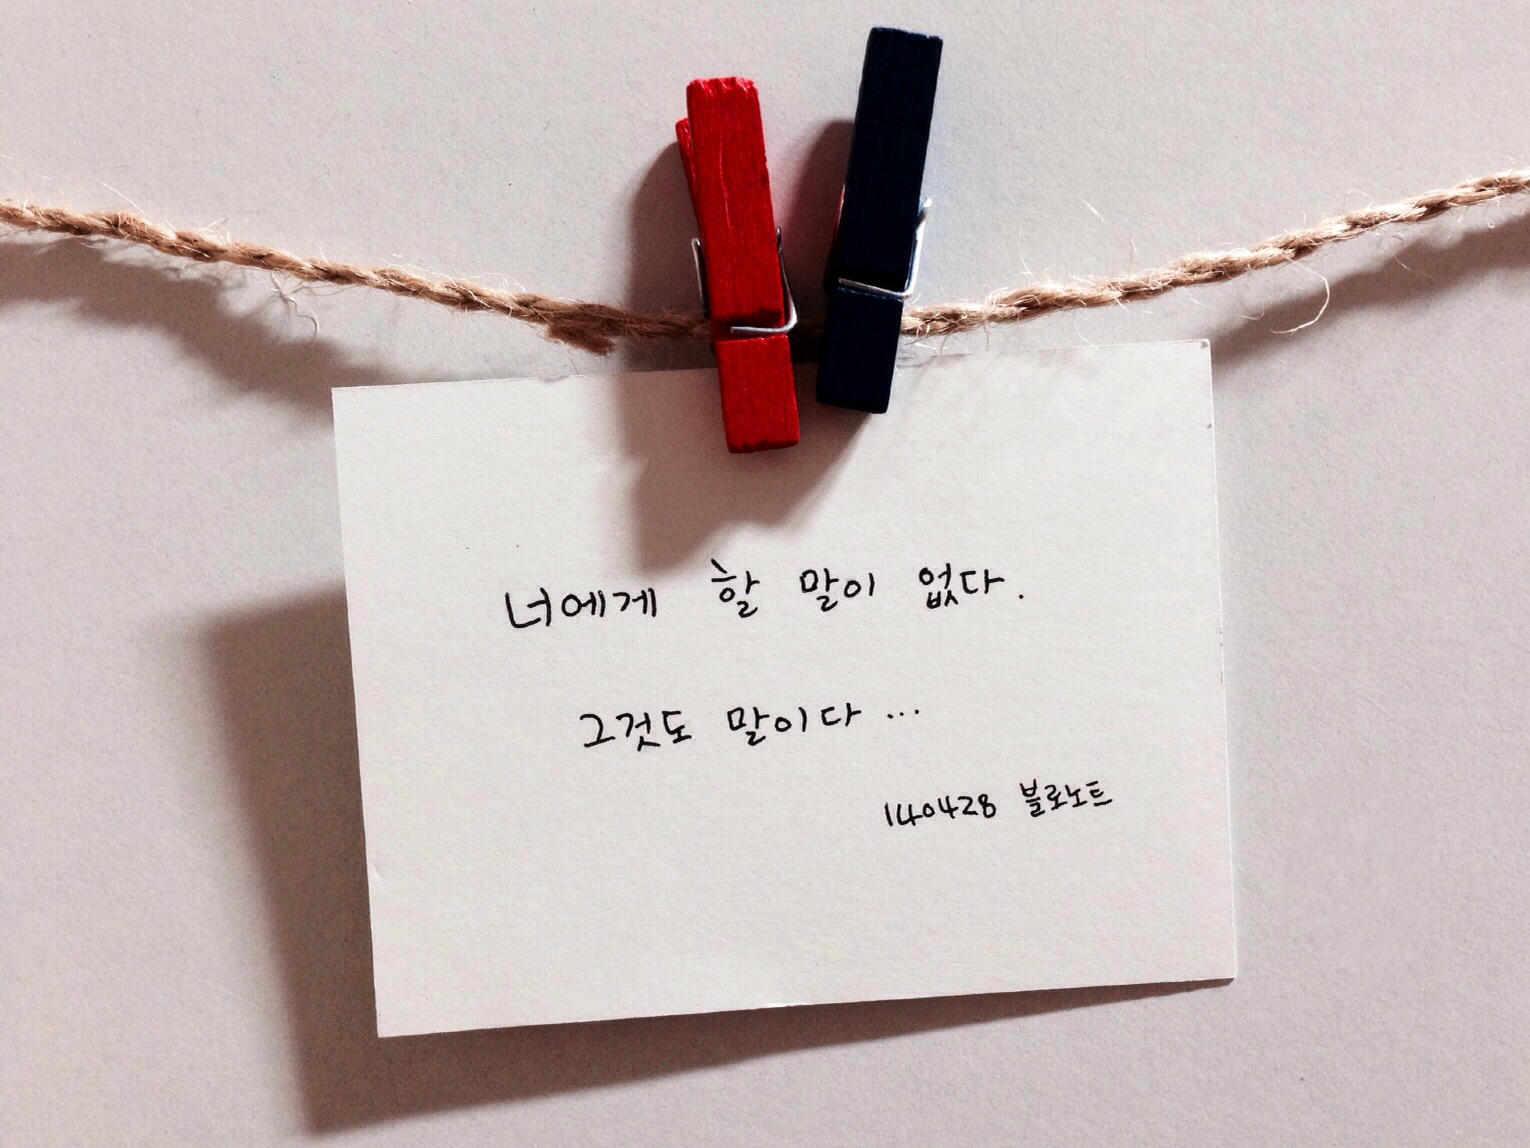 너에게 할 말이 없다.
그것도 말이다...
140428 블로노트